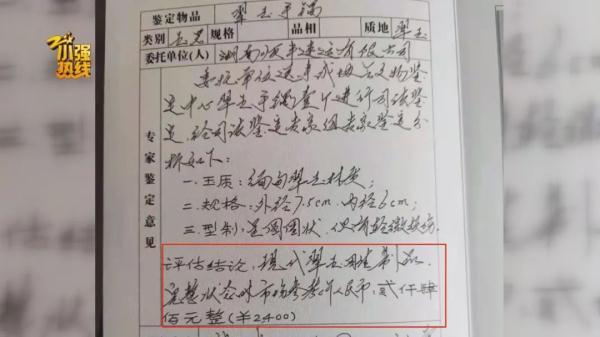 小强热线
鉴定物品 翠玉手镯
类别 玉器 规格 品相 质地 翠玉
委托单位(人) 湖南 有限公司
委托单位送来 文物鉴
定中心翠玉手镯壹个进行司法鉴
定,经司法鉴定专家组专家鉴定分
析如下:
专家鉴定意见
一.玉质:缅甸翠玉材质;
二.规格:外径7.5cm.内径6cm;
三.型制: 圆状. 有轻微
评估结论:现代翠玉 制品.
完整状态时市场参考价人民币:贰仟肆
佰元整(¥2,400)